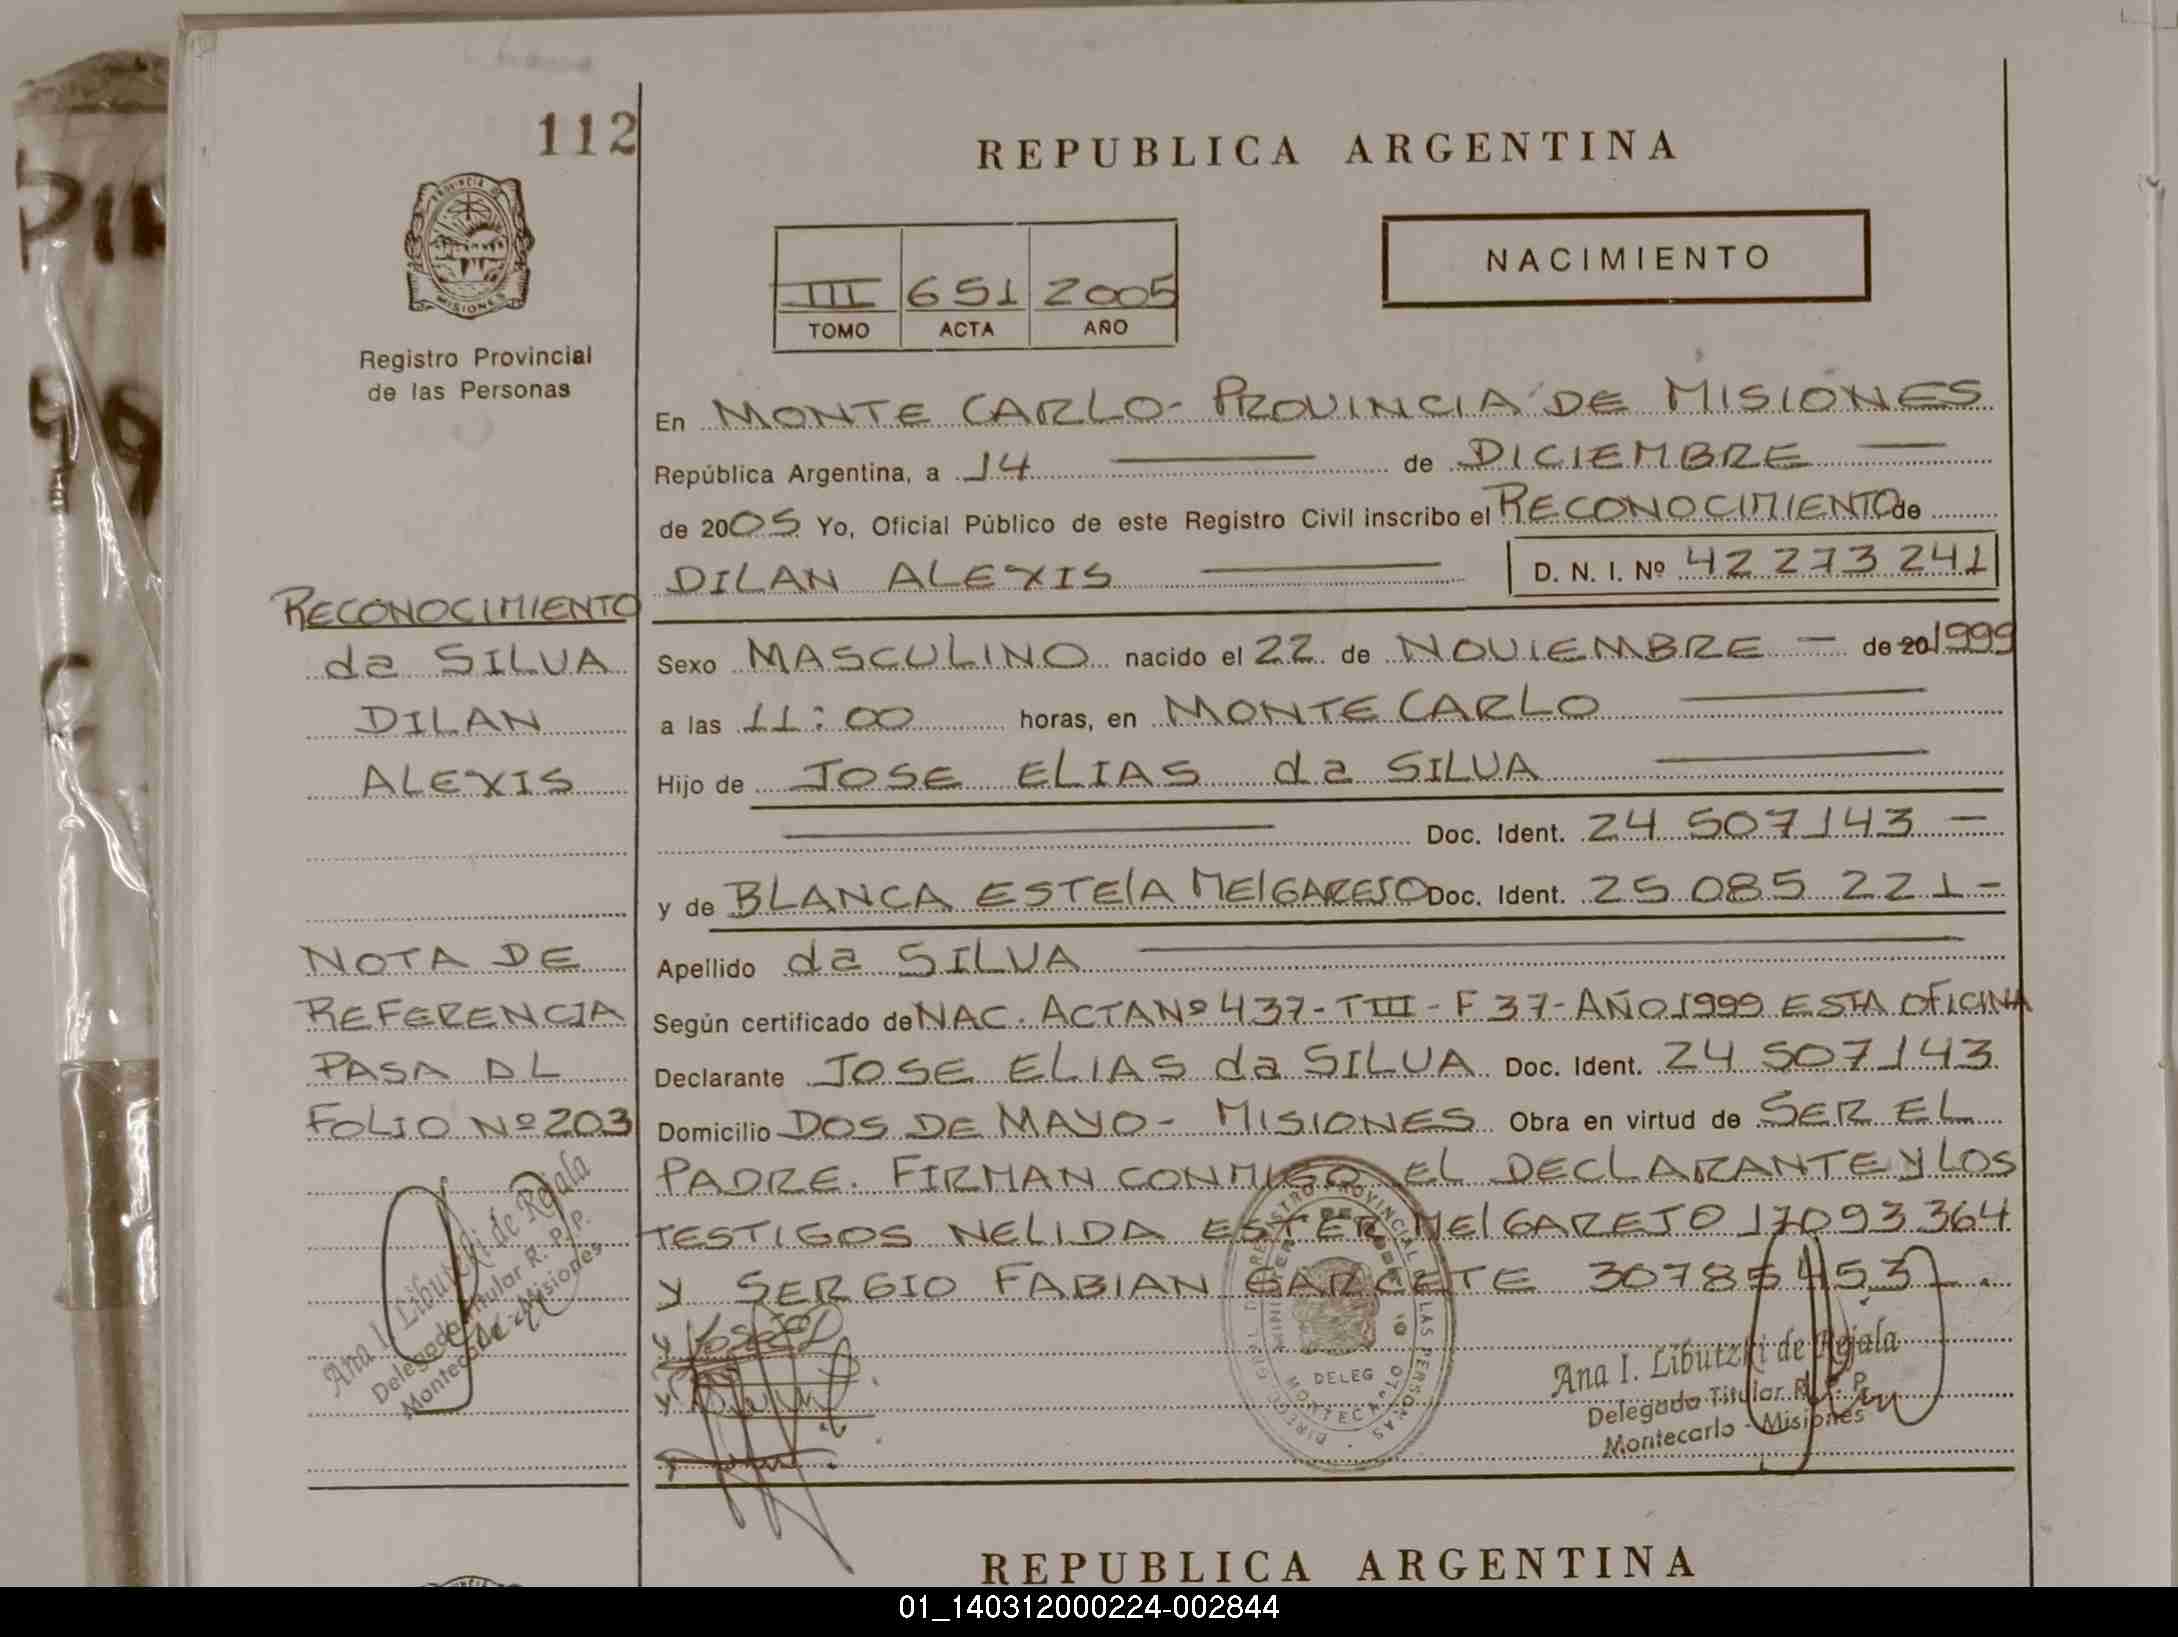 112
REPUBLICA ARGENTINA
PROVINCIA DE MISIONES
Registro Provincial
de las Personas
III 651 2005
TOMO ACTA AÑO
NACIMIENTO
En MONTE CARLO - PROVINCIA DE MISIONES
República Argentina, a 14 de DICIEMBRE
de 2005 Yo, Oficial Público de este Registro Civil inscribo el RECONOCIMIENTO de
DILAN ALEXIS D. N. I. Nº 42 273 241
Sexo MASCULINO nacido el 22 de NOVIEMBRE de 20 1999
a las 11:00 horas, en MONTECARLO
Hijo de JOSE ELIAS da SILVA
Doc. Ident. 24 507 143
y de BLANCA ESTElA MElGAREJO Doc. Ident. 25.085 221
Apellido da SILVA
Según certificado de NAC. ACTA Nº 437 - T III - F 37 - AÑO 1999 ESTA OFICINA
Declarante JOSE ELIAS da SILVA Doc. Ident. 24 507 143
Domicilio DOS DE MAYO - MISIONES Obra en virtud de SER EL
PADRE. FIRMAN CONMIGO EL DECLARANTE y LOS
TESTIGOS NELIDA ESTER MElGAREJO 17093364
y SERGIO FABIAN GARCETE 30785453
RECONOCIMIENTO
da SILVA
DILAN
ALEXIS
NOTA DE
REFERENCIA
PASA AL
FOLIO Nº 203
Ana I. Libutzki de Rejala
Delegada Titular R. P. P.
Montecarlo - Misiones
DELEG
MONTECARLO
Ana I. Libutzki de Rejala
Delegada Titular R. P. P.
Montecarlo - Misiones
REPUBLICA ARGENTINA
01_140312000224-002844